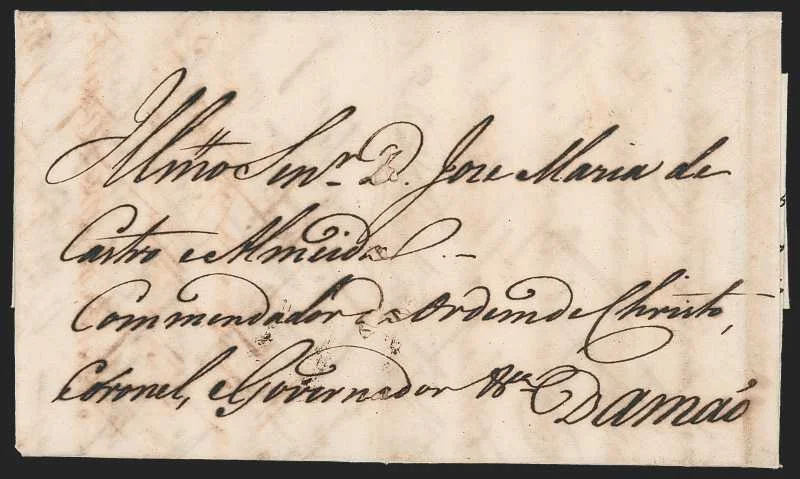 Illmo Senr. D. Jose Maria de
Castro e Almeida
Commendador da Ordem de Christo,
Coronel, e Governador &ca Damaõ